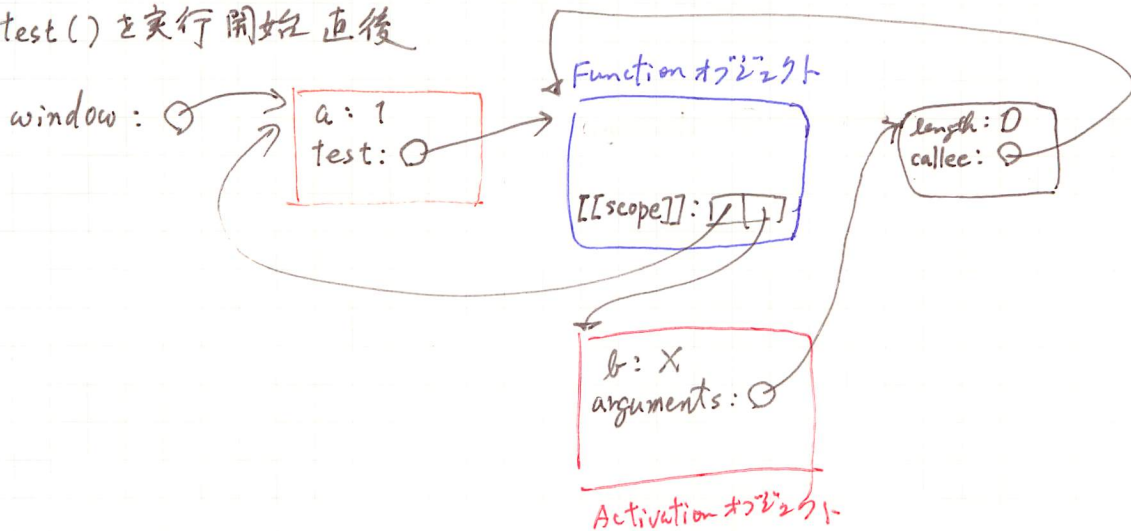 test()を実行開始直後
window:
a: 1
test:
Functionオブジェクト
[[scope]]:
length: 0
callee:
b: X
arguments:
Activationオブジェクト